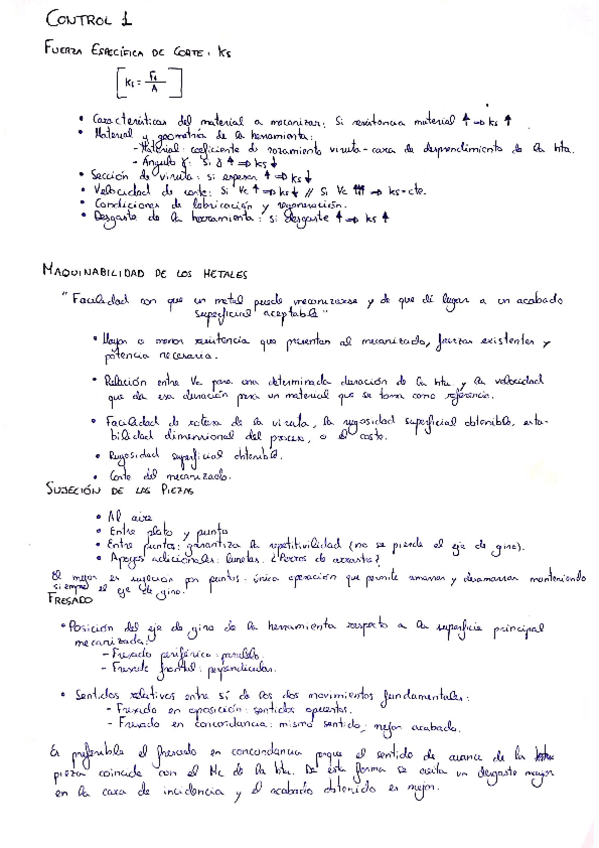 CONTROL 1
FUERZA ESPECÍFICA DE CORTE. Ks
[Ks = Fc / A]
• Características del material a mecanizar: Si resistencia material ↑ => ks ↑
• Material y geometría de la herramienta:
- Material: coeficiente de rozamiento viruta-cara de desprendimiento de la hta.
- Ángulo γ: Si γ ↑ => ks ↓
• Sección de viruta: si espesor ↑ => ks ↓
• Velocidad de corte: Si Vc ↑ => ks ↓ // Si Vc ↑↑↑ => ks = cte.
• Condiciones de lubricación y refrigeración.
• Desgaste de la herramienta: si desgaste ↑ => ks ↑
MAQUINABILIDAD DE LOS METALES
"Facilidad con que un metal puede mecanizarse y de que dé lugar a un acabado
superficial aceptable"
• Mayor o menor resistencia que presentan al mecanizado, fuerzas existentes y
potencia necesaria.
• Relación entre Vc para una determinada duración de la hta y la velocidad
que da esa duración para un material que se toma como referencia.
• Facilidad de rotura de la viruta, la rugosidad superficial obtenible, esta-
bilidad dimensional del proceso, o el coste.
• Rugosidad superficial obtenible.
• Coste del mecanizado.
SUJECIÓN DE LAS PIEZAS
• Al aire
• Entre plato y punto
• Entre puntos: garantiza la repetitividad (no se pierde el eje de giro).
• Apoyos adicionales: lunetas. ¿Perros de arrastre?
El mejor es sujeción por puntos. única operación que permite amarrar y desamarrar manteniendo
siempre el eje de giro.
FRESADO
• Posición del eje de giro de la herramienta respecto a la superficie principal
mecanizada:
- Fresado periférico: paralelo.
- Fresado frontal: perpendicular.
• Sentidos relativos entre sí de los dos movimientos fundamentales:
- Fresado en oposición: sentidos opuestos.
- Fresado en concordancia: mismo sentido; mejor acabado.
Es preferible el fresado en concordancia porque el sentido de avance de la
pieza coincide con el Mc de la hta. De esta forma se evita un desgaste mayor
en la cara de incidencia y el acabado obtenido es mejor.